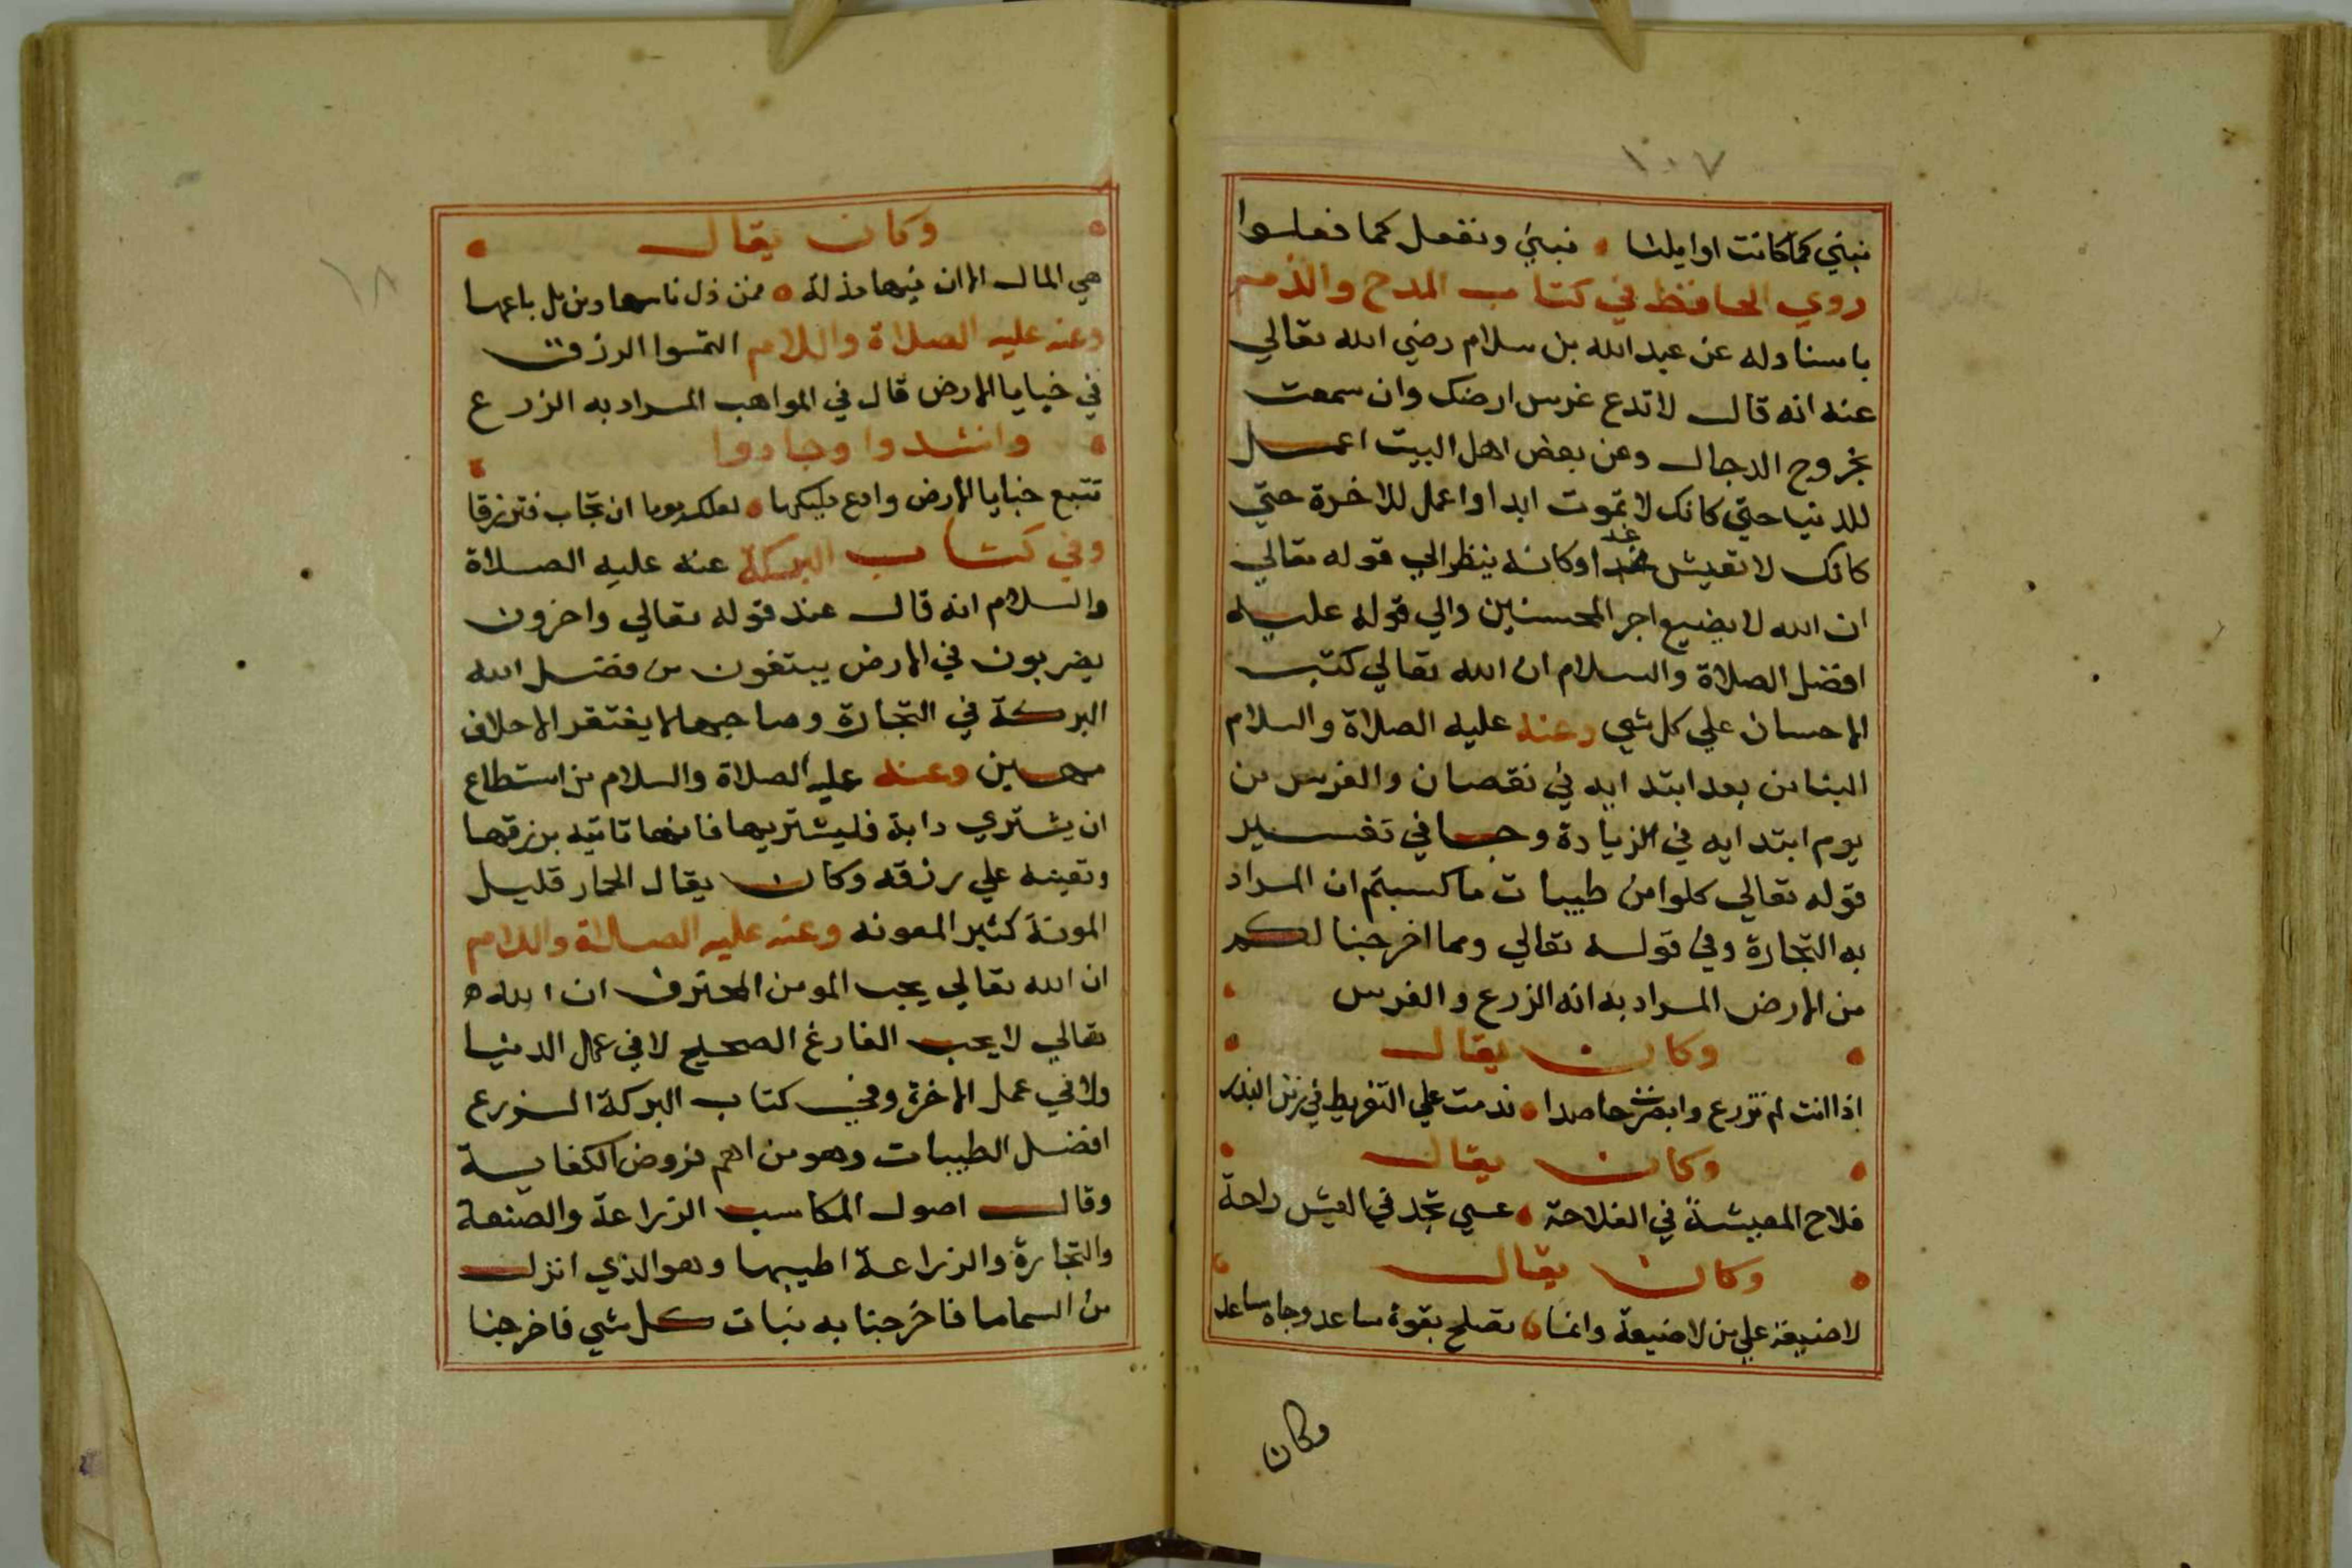 ١٠٧
نبني كما كانت اوايلنا نبني ونفعل كما فعلوا
روي الحافظ في كتاب المدح والذم
باسناوله عن عبد الله بن سلام رضي الله تعالي
عنه انه قال لا تدع غرس ارضك وان سمعت
بخروج الدجال وعن بعض اهل البيت اعمل
للدنيا حتي كانك لا تموت ابدا واعمل للاخرة حتي
كانك لا تعيش غدا وكانه ينظر الي قوله تعالي
ان الله لا يضيع اجر المحسنين والي قوله عليه
افضل الصلاة والسلام ان الله تعالي كتب
الاحسان علي كل شي وعنه عليه الصلاة والسلام
البنا من بعد ابتدايه في نقصان والغرس من
يوم ابتدايه في الزيادة وجا في تفسير
قوله تعالي كلوا من طيبات ما كسبتم ان المراد
به التجارة وفي قوله تعالي ومما اخرجنا لكم
من الارض المراد به انه الزرع والغرس
وكان يقال
اذا انت لم تزرع وابصرت حاصدا ندمت علي التفريط في زمن البذر
وكان يقال
فلاح المعيشة في الفلاحة عسي تجد في العيش راحة
وكان يقال
لا ضيعة علي من لا ضيعة وانما تصلح بقوة ساعد وجاه ساعد
وكان
١٨
وكان يقال
هي المال الا ان فيها مذلة فمن ذل قاسها ومن مل باعها
وعنه عليه الصلاة والسلام التمسوا الرزق
في خبايا الارض قال في المواهب المراد به الزرع
وانشدوا وجادوا
تتبع خبايا الارض وادع مليكها لعلك يوما ان تجاب فترزقا
وفي كتاب البركة عنه عليه الصلاة
والسلام انه قال عند قوله تعالي واخرون
يضربون في الارض يبتغون من فضل الله
البركة في التجارة وصاحبها لا يفتقر الا حلاف
مهين وعنه عليه الصلاة والسلام من استطاع
ان يشتري دابة فليشتريها فانها تاتيه برزقها
وتعينه علي رزقه وكان يقال الحمار قليل
المونة كثير المعونه وعنه عليه الصلاة والسلام
ان الله تعالي يحب المومن المحترف ان الله
تعالي لا يحب الفارغ الصحيح لا في عمل الدنيا
ولا في عمل الاخرة وفي كتاب البركة الزرع
افضل الطيبات وهو من اهم فروض الكفاية
وقال اصول المكاسب الزراعة والصنعة
والتجارة والزراعة اطيبها وهو الذي انزل
من السما ما فاخرجنا به نبات كل شي فاخرجنا